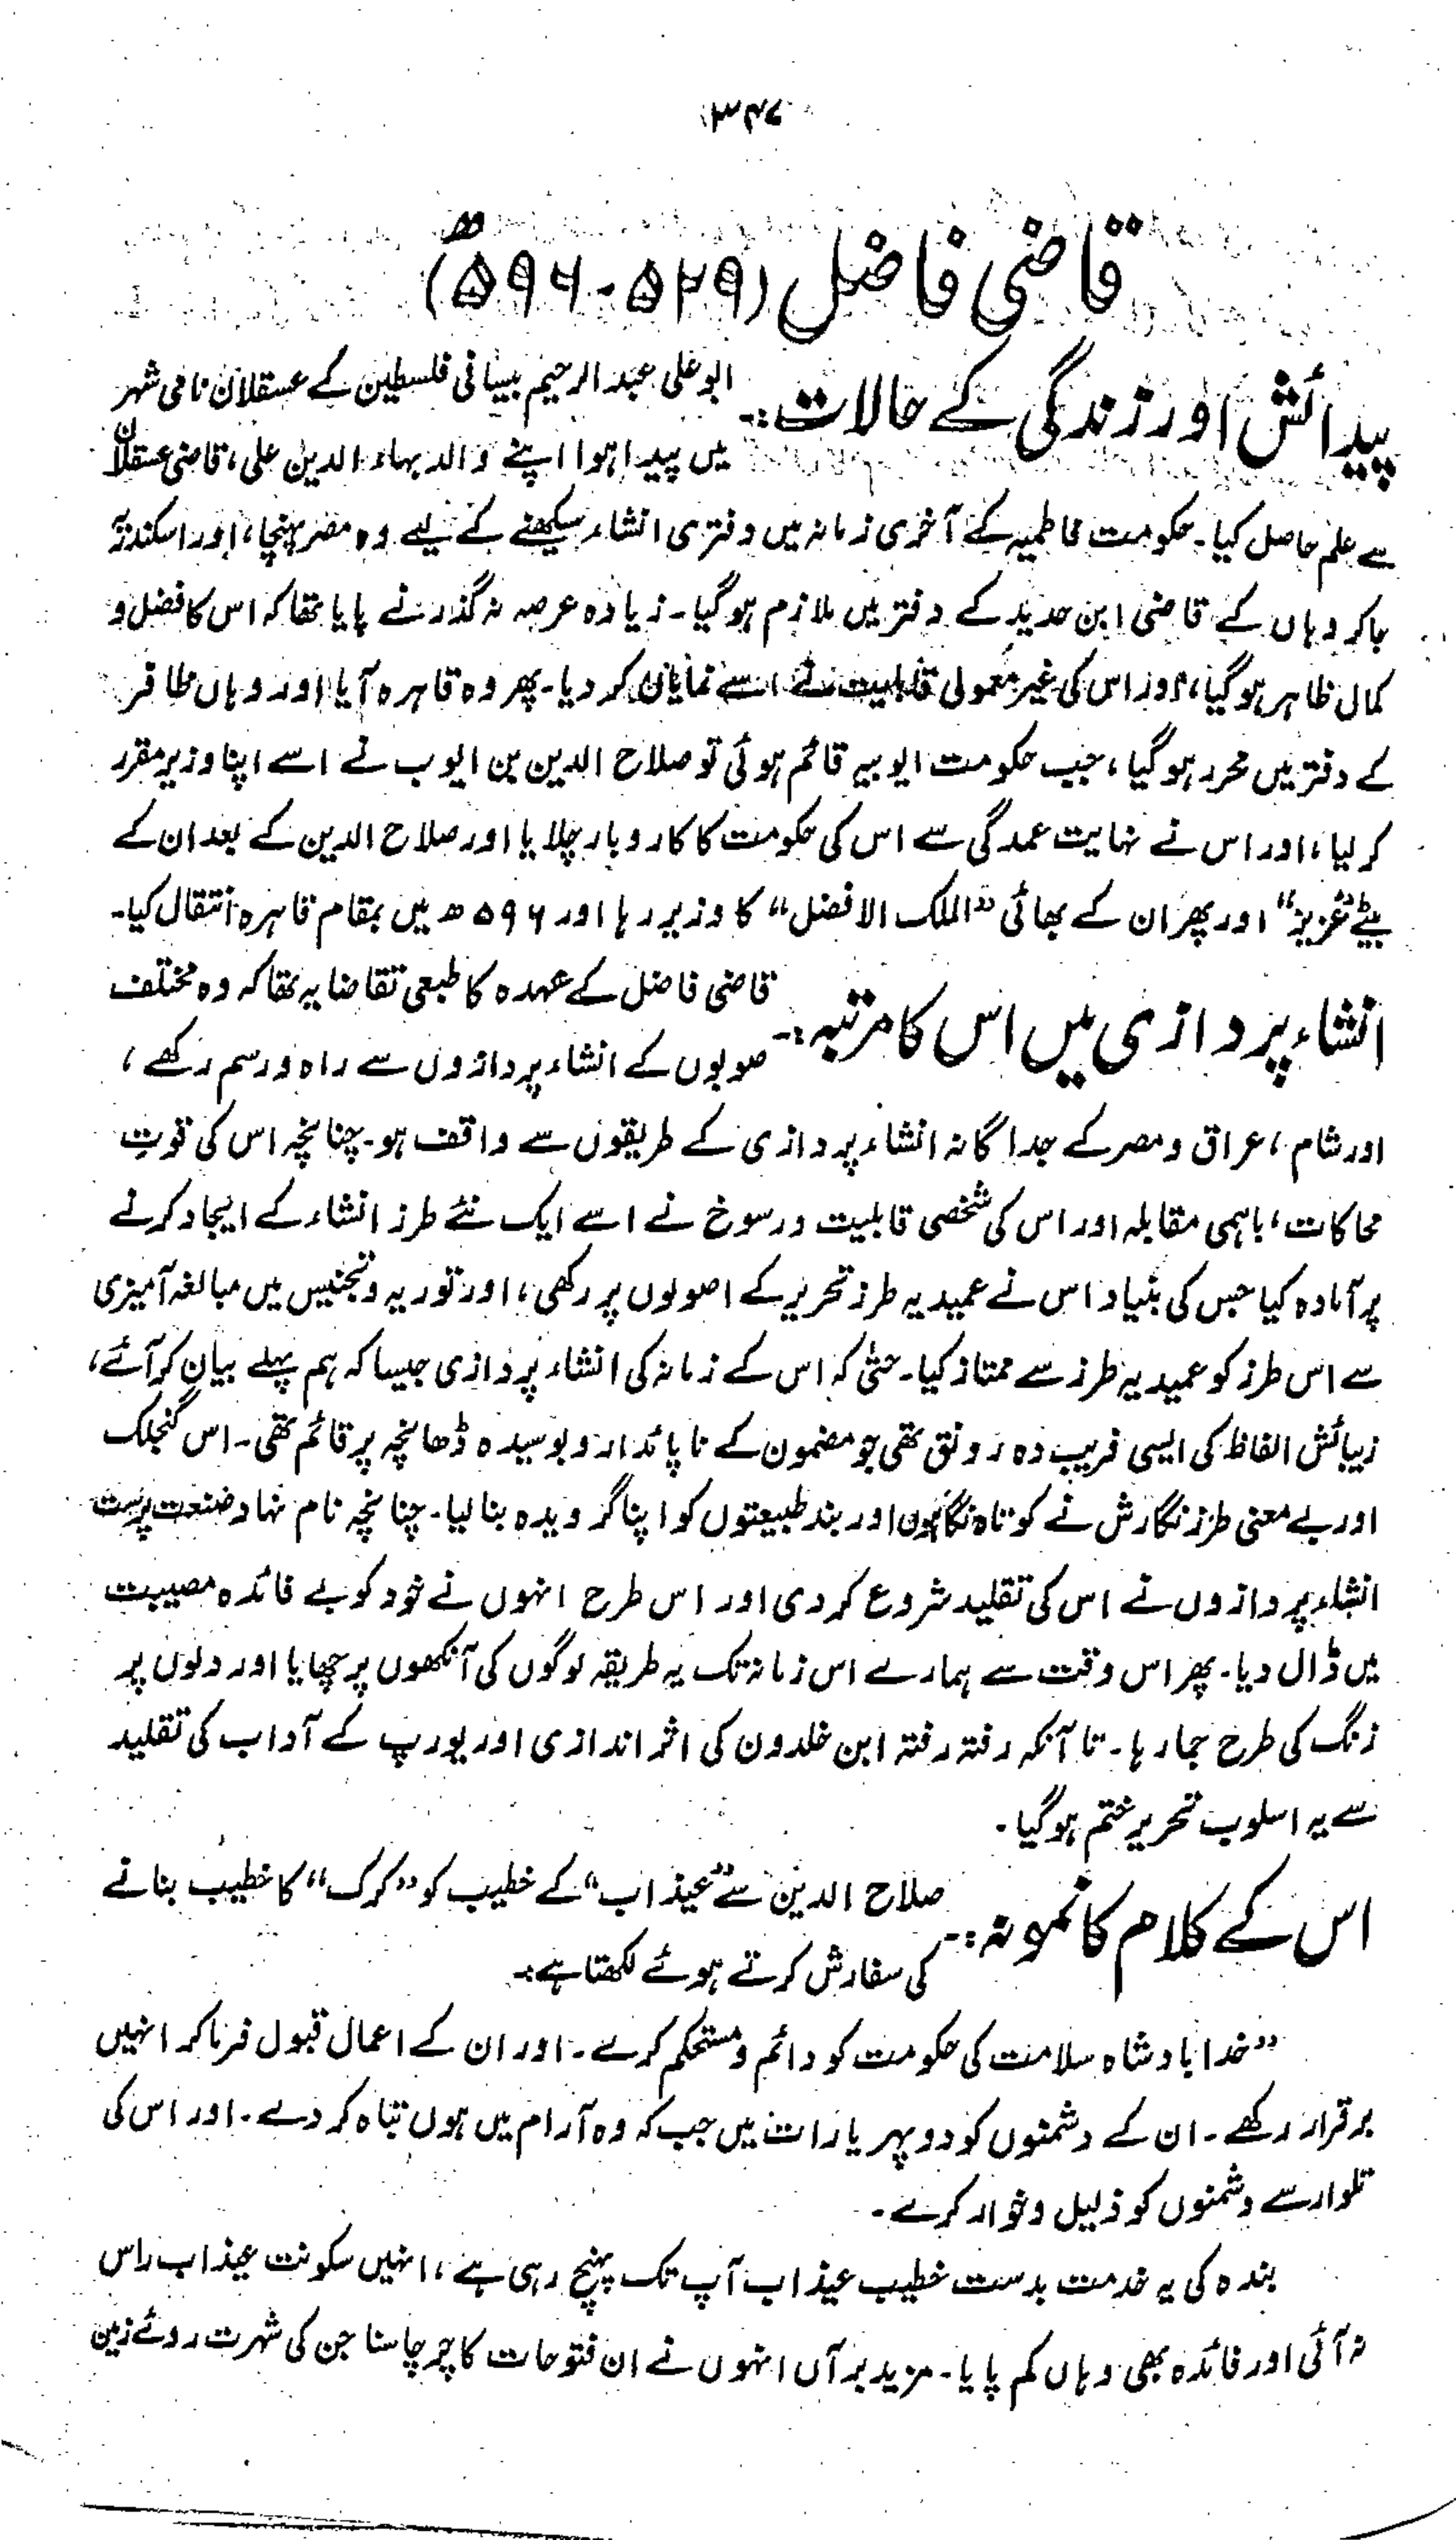 ۳۴۷
قاضی فاضل (۵۲۹-۵۹۶ھ)
پیدائش اور زندگی کے حالات:۔ ابو علی عبد الرحیم بیسانی فلسطین کے عسقلان نامی شہر
میں پیدا ہوا اپنے والد بہاء الدین علی، قاضی عسقلان
سے علم حاصل کیا۔ حکومت فاطمیہ کے آخری زمانہ میں دفتری انشاء سیکھنے کے لیے وہ مصر پہنچا، اور اسکندریہ
جاکر وہاں کے قاضی ابن حدید کے دفتر میں ملازم ہو گیا۔ زیادہ عرصہ نہ گذرنے پایا تھا کہ اس کا فضل و
کمال ظاہر ہو گیا، اور اس کی غیر معمولی قابلیت نے اسے نمایاں کر دیا۔ پھر وہ قاہرہ آیا اور وہاں ظافر
کے دفتر میں محرر ہو گیا، جب حکومت ایوبیہ قائم ہوئی تو صلاح الدین بن ایوب نے اسے اپنا وزیر مقرر
کر لیا، اور اس نے نہایت عمدگی سے اس کی حکومت کا کاروبار چلایا اور صلاح الدین کے بعد ان کے
بیٹے ”عزیز“ اور پھر ان کے بھائی ”الملک الافضل“ کا وزیر رہا اور ۵۹۶ھ میں بمقام قاہرہ انتقال کیا۔
انشاء پردازی میں اس کا مرتبہ:۔ قاضی فاضل کے عہدہ کا طبعی تقاضا یہ تھا کہ وہ مختلف
صوبوں کے انشاء پردازوں سے راہ و رسم رکھے،
اور شام، عراق و مصر کے جداگانہ انشاء پردازی کے طریقوں سے واقف ہو۔ چنانچہ اس کی قوتِ
محاکات، باہمی مقابلہ اور اس کی شخصی قابلیت ورسوخ نے اسے ایک نئے طرز انشاء کے ایجاد کرنے
پر آمادہ کیا جس کی بنیاد اس نے عمیدیہ طرز تحریر کے اصولوں پر رکھی، اور توریہ و تجنیس میں مبالغہ آمیزی
سے اس طرز کو عمیدیہ طرز سے ممتاز کیا۔ حتیٰ کہ اس کے زمانہ کی انشاء پردازی جیسا کہ ہم پہلے بیان کر آئے،
زیبائش الفاظ کی ایسی فریب دہ رونق تھی جو مضمون کے ناپائدار و بوسیدہ ڈھانچہ پر قائم تھی۔ اس گنجلک
اور بے معنی طرز نگارش نے کوتاہ نگاہوں اور بند طبیعتوں کو اپنا گرویدہ بنا لیا۔ چنانچہ نام نہاد صنعت پرست
انشاء پردازوں نے اس کی تقلید شروع کر دی اور اس طرح انہوں نے خود کو بے فائدہ مصیبت
میں ڈال دیا۔ پھر اس وقت سے ہمارے اس زمانہ تک یہ طریقہ لوگوں کی آنکھوں پر چھایا اور دلوں پر
زنگ کی طرح جما رہا۔ تا آنکہ رفتہ رفتہ ابن خلدون کی اثر اندازی اور یورپ کے آداب کی تقلید
سے یہ اسلوب تحریر ختم ہو گیا۔
اس کے کلام کا نمونہ:۔ صلاح الدین سے ”عیذاب“ کے خطیب کو ”کرک“ کا خطیب بنانے
کی سفارش کرتے ہوئے لکھتا ہے:۔
”خدا بادشاہ سلامت کی حکومت کو دائم و مستحکم کرے۔ اور ان کے اعمال قبول فرما کر انہیں
برقرار رکھے۔ ان کے دشمنوں کو دوپہر یا رات میں جب کہ وہ آرام میں ہوں تباہ کر دے۔ اور اس کی
تلوار سے دشمنوں کو ذلیل و خوار کرے۔
بندہ کی یہ خدمت بدست خطیب عیذاب آپ تک پہنچ رہی ہے، انہیں سکونت عیذاب راس
نہ آئی اور فائدہ بھی وہاں کم پایا۔ مزید برآں انہوں نے ان فتوحات کا چرچا سنا جن کی شہرت روئے زمین